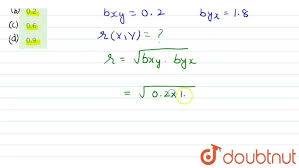 (a) 0.2
(c) 0.6
(d) 0.9
bxy = 0.2 byx = 1.8
r(x,y) = ?
r = √bxy. byx
= √0.2x1.
doubtnut